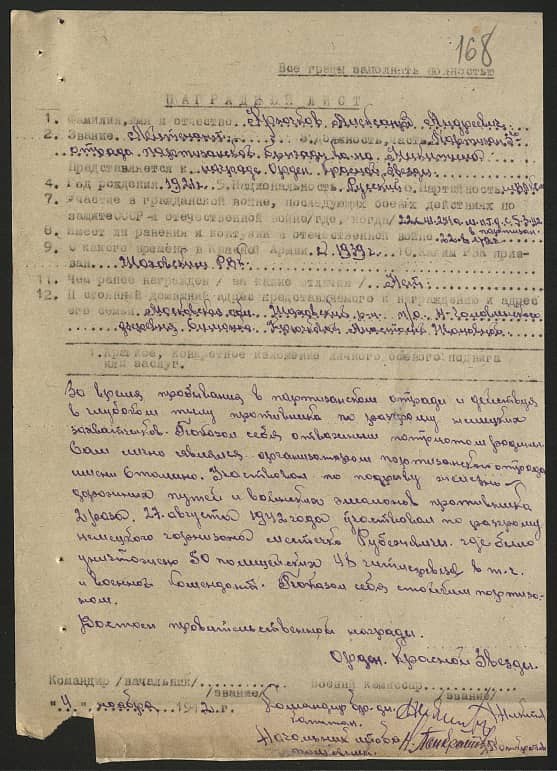 168
Все графы заполнять полностью
НАГРАДНЫЙ ЛИСТ
1. Фамилия, имя и отчество. Крюков Александр Андреевич
2. Звание. Лейтенант. 3. Должность, часть. Партизан
отряда партизанск. бригады им.
Представляется к награде Орден Красной Звезды
4. Год рождения. 1921г. 5. Национальность. Русский 6. Партийность.
7. Участие в гражданской войне, последующих боевых действиях по
защите СССР и отечественной войне /где, когда/
8. Имеет ли ранения и контузии в отечественной войне.
9. С какого времени в Красной Армии. с 1939г. 10. Каким РВК приз-
ван. Шаховским РВК.
11. Чем ранее награжден /за какие отличия/. Нет.
12. Постоянный домашний адрес представляемого к награждению и адрес
его семьи. Московская обл. Шаховский р-н. п/о
деревня Крюкова Анастасия Ивановна
1. Краткое, конкретное изложение личного боевого подвига
или заслуг.
За время пребывания в партизанском отряде и действуя
в глубоком тылу противника по разгрому немецких
захватчиков. Показал себя отважным патриотом родины.
Сам лично являлся организатором партизанского отряда
имени Сталина. Участвовал по подрыву железно-
дорожных путей и воинских эшелонов противника
2 раза, 27. августа 1942 года участвовал по разгрому
немецкого гарнизона местечко Рубежевичи. где было
уничтожено 50 полицейских 48 гитлеровцев в т.ч.
и военный комендант. Показал себя стойким партиза-
ном.
Достоин правительственной награды.
Орден. Красной Звезды.
Командир /начальник/ Военный комиссар
/звание/ /звание/
"4" ноября 1942 г. Командир бр-ды
капитан.
Начальник штаба